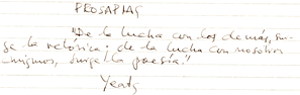 PROSAPIAS
"De la lucha con los demás, sur-
ge la retórica; de la lucha con nosotros
mismos, surge la poesía."
Yeats